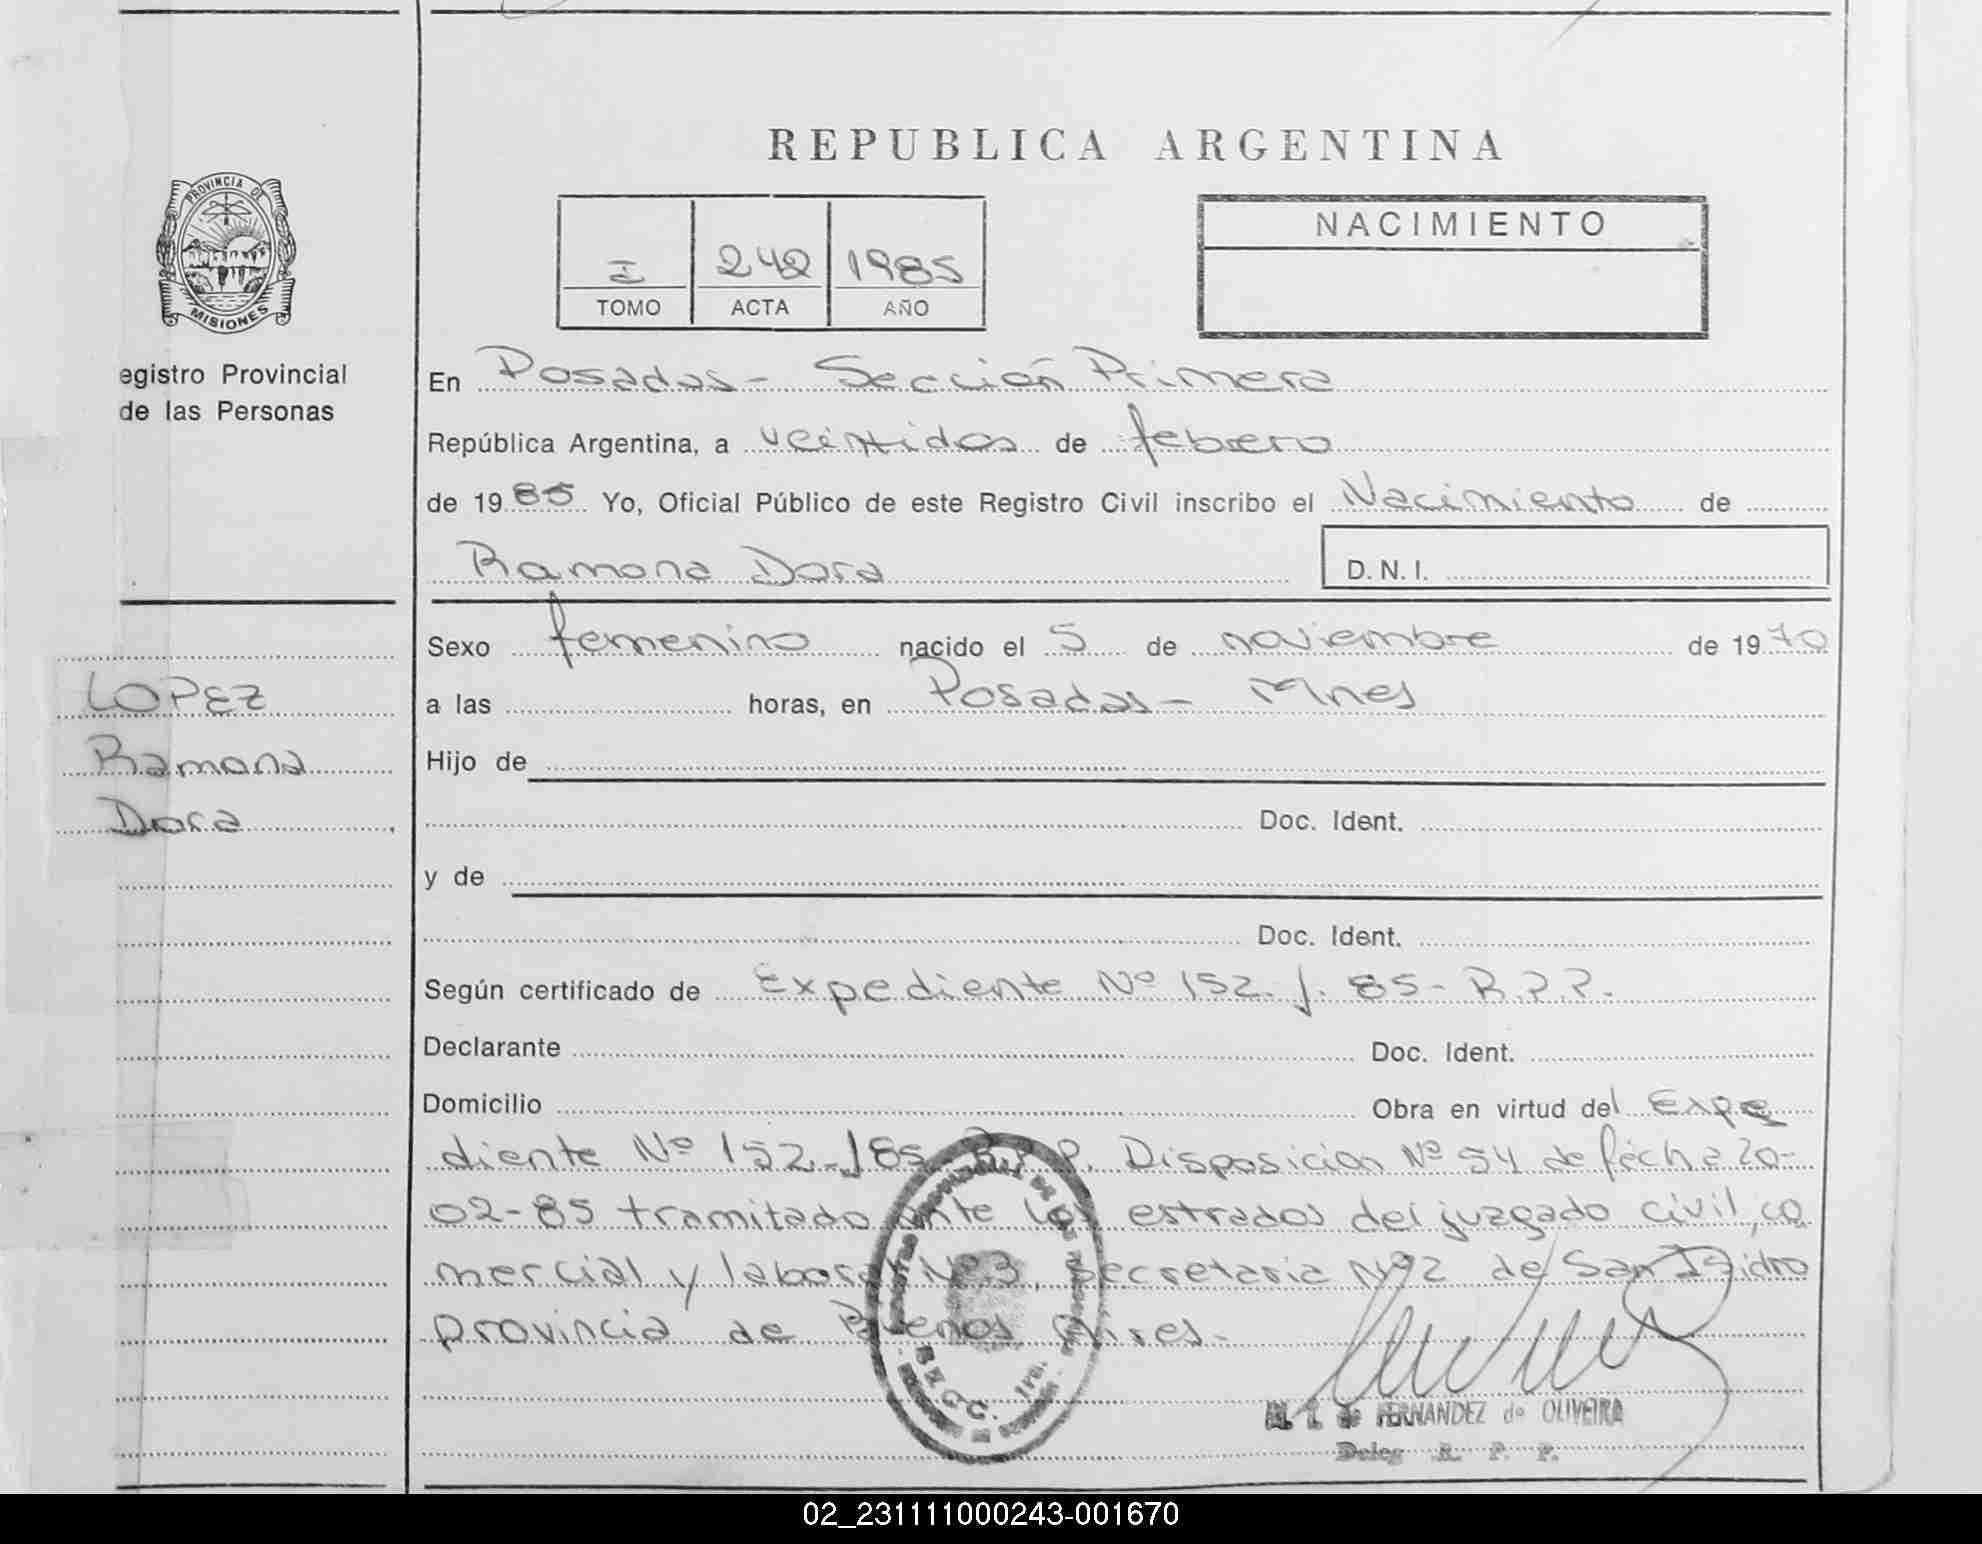 REPUBLICA ARGENTINA
PROVINCIA DE
MISIONES
NACIMIENTO
I 242 1985
TOMO ACTA AÑO
egistro Provincial
de las Personas
En Posadas - Sección Primera
República Argentina, a veintidos de febrero
de 1985 Yo, Oficial Público de este Registro Civil inscribo el Nacimiento de
Ramona Dora
D. N. I.
Sexo femenino nacido el 5 de noviembre de 1970
LOPEZ
a las horas, en Posadas - Mnes
Ramona
Hijo de
Dora
Doc. Ident.
y de
Doc. Ident.
Según certificado de Expediente Nº 152. J. 85- R.P.P.
Declarante Doc. Ident.
Domicilio Obra en virtud del Expe
diente Nº 152-J85 R.P.P. Disposicion Nº 54 de fecha 20-
02-85 tramitado ante los estrados del juzgado civil, co
mercial y laboral Nº3, Secretaria Nº2 de San Isidro
provincia de Buenos Aires.
FERNANDEZ de OLIVEIRA
Deleg R. P. P.
02_231111000243-001670